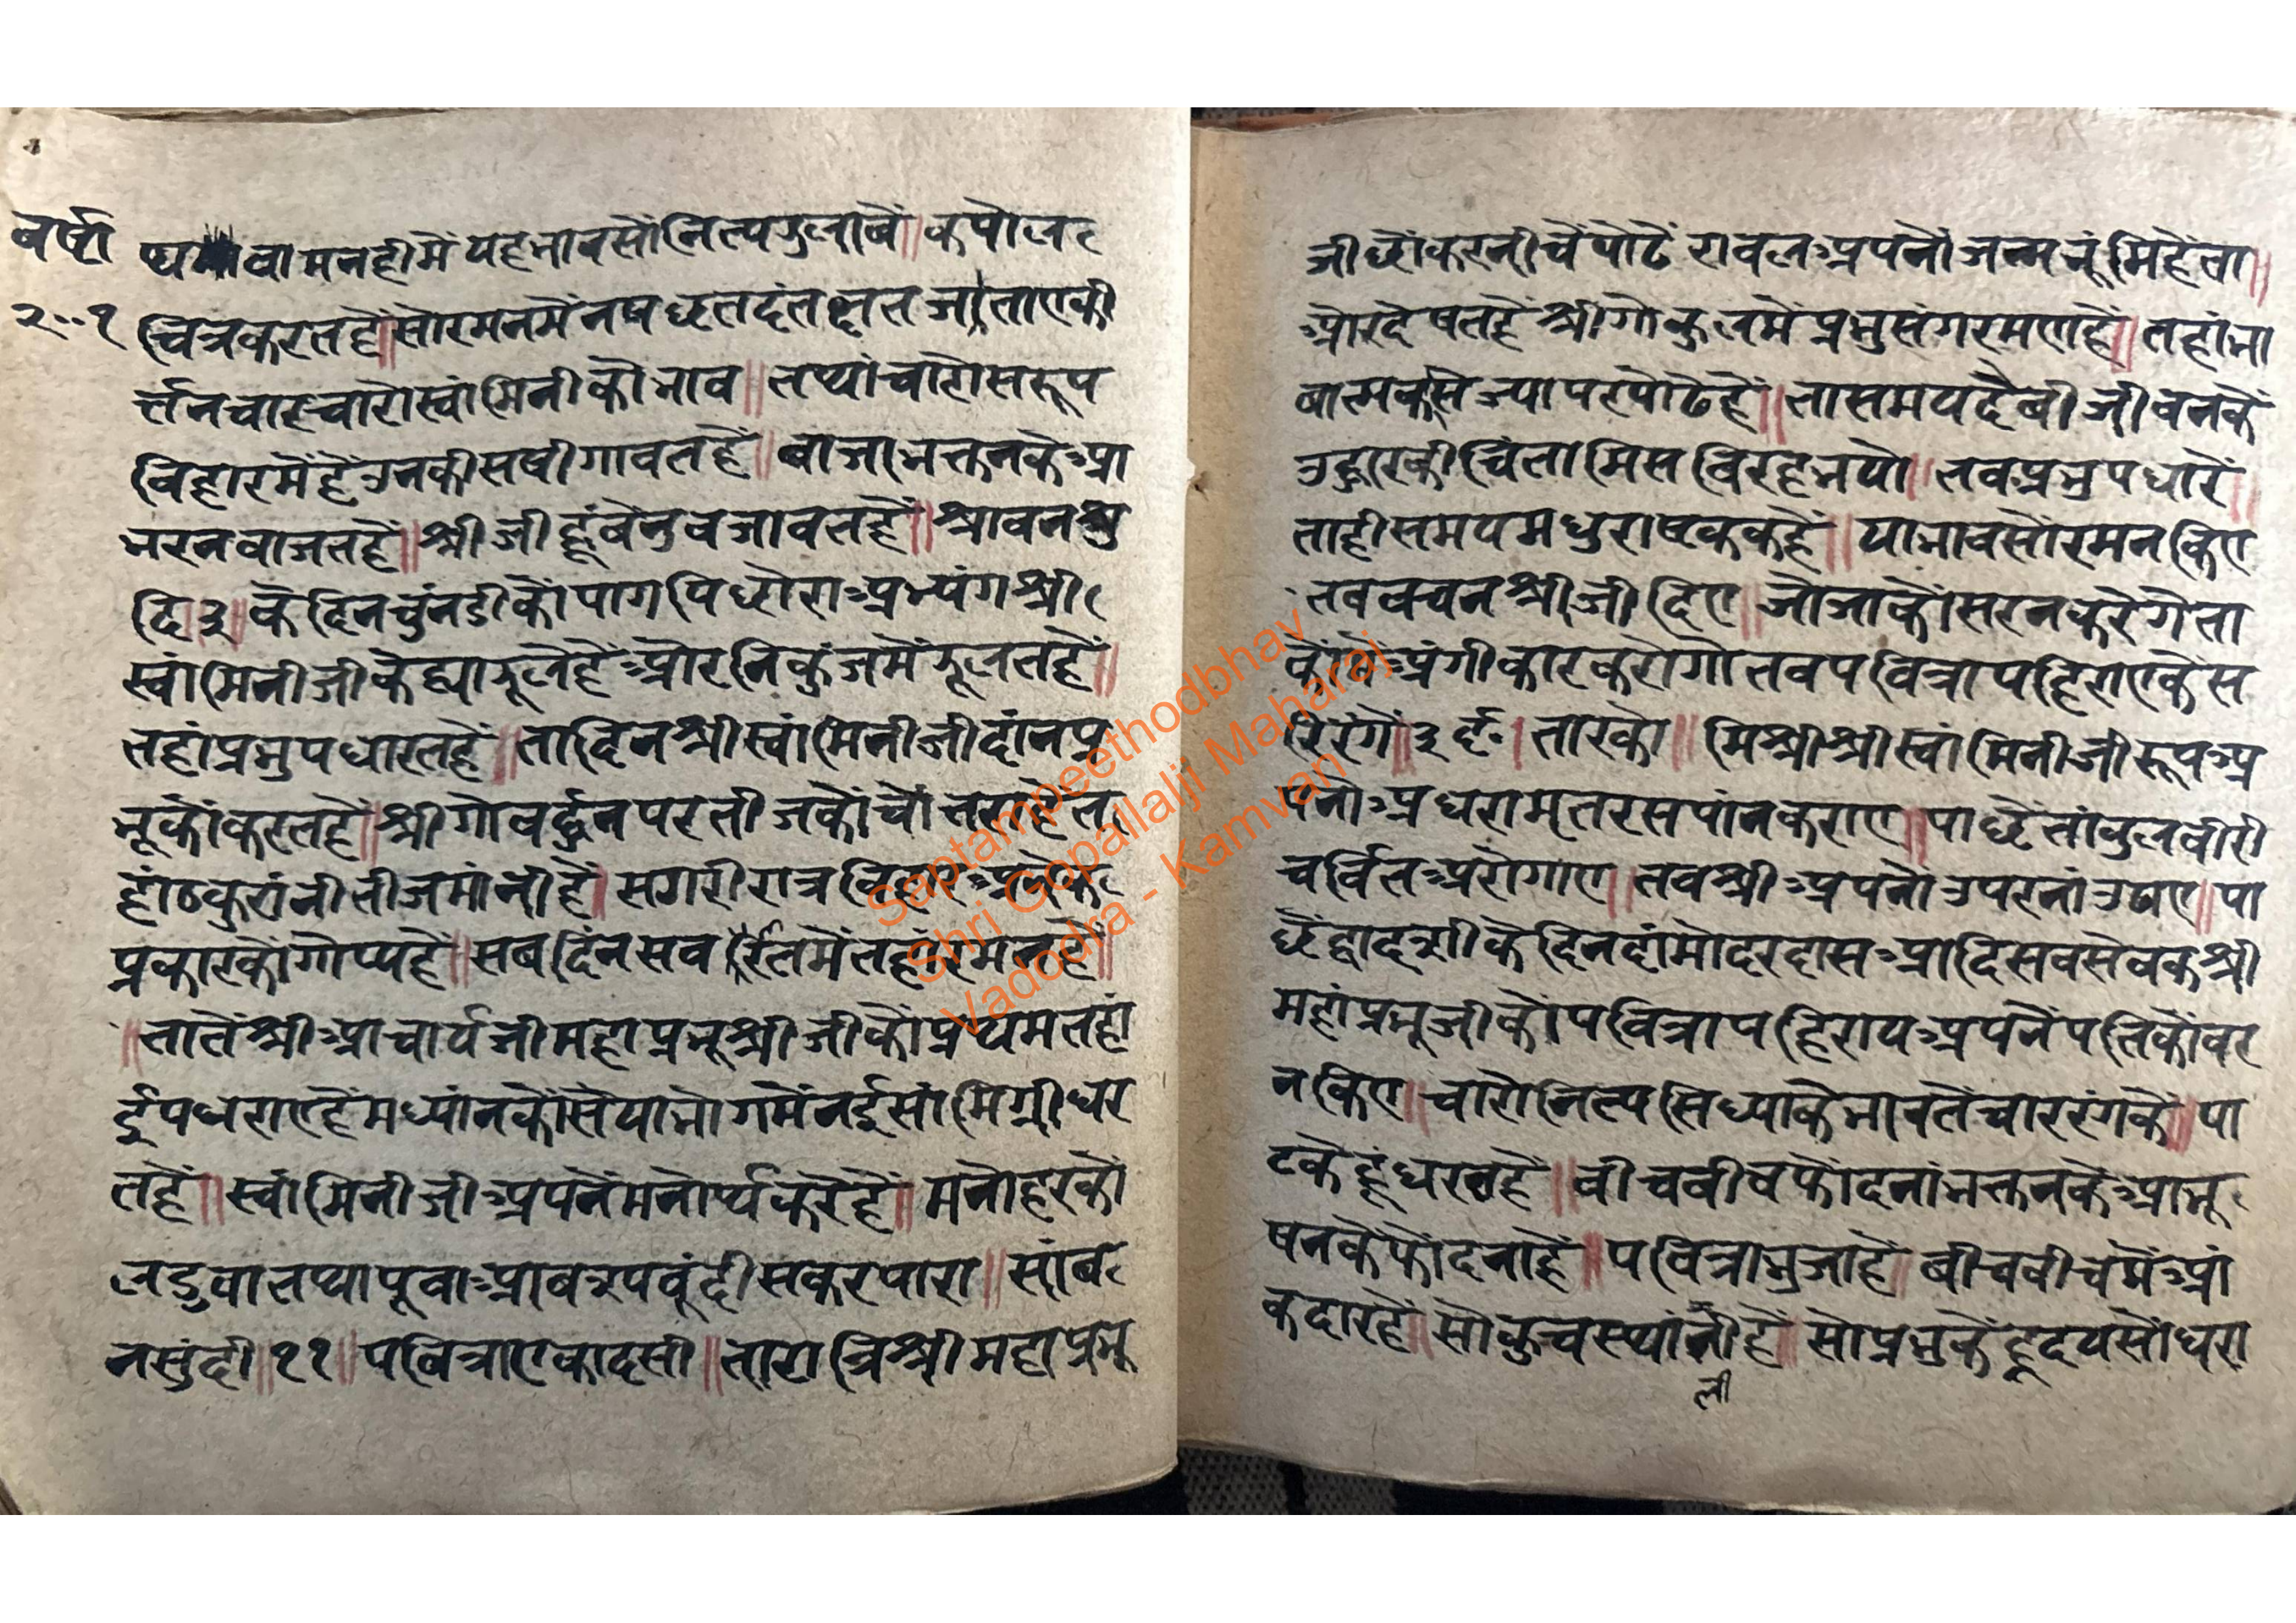 वर्षा
२००१
ष्य वामनहीमें यहभावसोंनित्यझुलावें॥ कपोल
चित्रकरतहें॥सोरमनमेंनषछतदंतछतजाताएकी
र्त्तनचारचारोस्वांमिनीकोभाव॥ तथाचारोसरूप
विहारमेंहेंउनकीसषीगावतहें॥ बाजाभक्तनकेआ
भरनवाजतहें॥श्रीजीहूंवेनुवजावतहें॥श्रावनशु
दि ३॥के दिनचुंनडीकोपागपिछोराअभ्यंगश्री
स्वांमिनीजीकेह्याझूलेहेंओरनिकुंजमेंझूलतहें॥
तहांप्रभुपधारतहें॥तादिनश्रीस्वांमिनीजीदांनप्र
भूकोंकरतहें॥श्रीगोवर्द्धनपरतीजकोंचोंतराहेत
हांठकुरांनीतीजमांनीहें॥सगरीरात्रविहारअनेक
प्रकारकोंगोप्यहें॥सबदिंनसव रितमेंतहांरमनहें॥
॥तातेंश्रीआचार्यजीमहाप्रभूश्रीजीकोंप्रथमतहां
ईपधराएहेंमध्यांनकोंसेयाभोगमेंनईसांमिग्रीधर
तहें॥स्वांमिनीजीअपनेंमनोर्थकरेहें॥मनोहरको
लडुवातथापूवाआवरूपवूंदीसकरपारा॥सांब
नसुंदी॥११॥पवित्राएकादसी॥तारात्रिश्रीमहाप्रभू
जीछोंकरनीचेंपोढें रावलअपनोंजन्मभूंमिहेंता॥
ओरदेषतहेंश्रीगोकुलमेंप्रभुसंगरमणहें॥तहांभा
बात्मकसेज्यापरपोढेहें॥तासमयदैबीजीवनकें
उद्धारकीचिंतामिसविरहभयो॥तवप्रभुपधारें॥
ताहीसमयमधुराष्टककहें॥याभावसोंरमनकिए
तववचनश्रीजीदिए॥जोजाकोंसरनकरेगेता
कोंमेंअंगीकारकरोगोतवपवित्रापहिराएकेस
रिरंगें॥३६०।तारको॥मिश्रीश्रीस्वांमिनीजीरूपअ
पनोअधरामृतरसपांनकराए॥पाछेंतांवुलवीरी
चर्वितअरोगाए॥तवश्रीअपनोउपरनांउढाए॥पा
छेंद्वादशीकेदिनदांमोदरदासआदिसवसेवकश्री
महांप्रभूजीकोंपवित्रापहिरायअपनेंपतिकोंवर
नकिए॥चारोनित्यसिध्याकेभावतेंचाररंगकें॥पा
टकेहूंधरतहें॥वीचवीचफोंदनांभक्तनकेआभू
षनकेफोंदनाहें॥पवित्राभुजाहें॥बीचवीचमेंआं
कदारहें॥सोकुचस्थांनीहें॥सोप्रभुकेंहृदयसोंधरा
ली